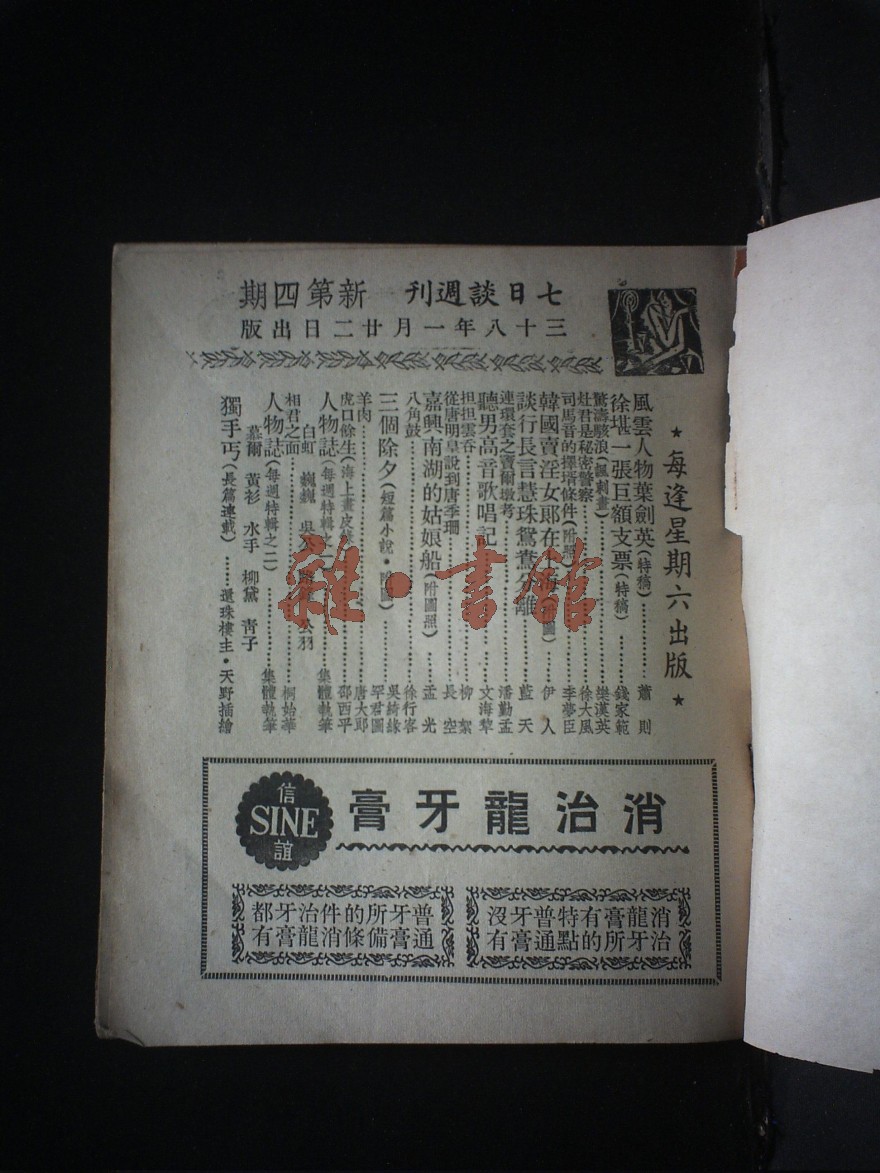 七日談週刊 新第四期
三十八年一月廿二日出版
★每逢星期六出版★
風雲人物葉劍英(特稿)……蕭則
徐堪一張巨額支票(特稿)……錢家範
驚濤駭浪(諷刺畫)……樊漢英
灶君是秘密警察……徐大風
司馬音的擇壻條件(附照)……李夢臣
韓國賣淫女郎在上海 圖)……伊人
談行長言慧珠鴛鴦分離……藍天
連環套之賣爾墩考……潘勤孟
聽男高音歌唱記……文海犂
担担雲吞……柳絮
從唐明皇說到唐季珊……長空
嘉興南湖的姑娘船(附圖照)……孟光
八角鼓……徐行客
三個除夕(短篇小說·附圖)……吳綺緣
罕君圖
羊肉……唐大郎
虎口餘生(海上畫皮錄)……邵西平
人物誌(每週特輯之一)……集體執筆
白虹 巍巍 吳 公羽
相君之面……桐始華
人物誌(每週特輯之二)……集體執筆
慕爾 黃衫 水手 柳黛 青子
獨手丐(長篇連載)……還珠樓主·天野插繪
雜·書館
消治龍牙膏
信
SINE
誼
消治龍牙膏所有的特點普通牙膏沒有
普通牙膏所備的條件消治龍牙膏都有